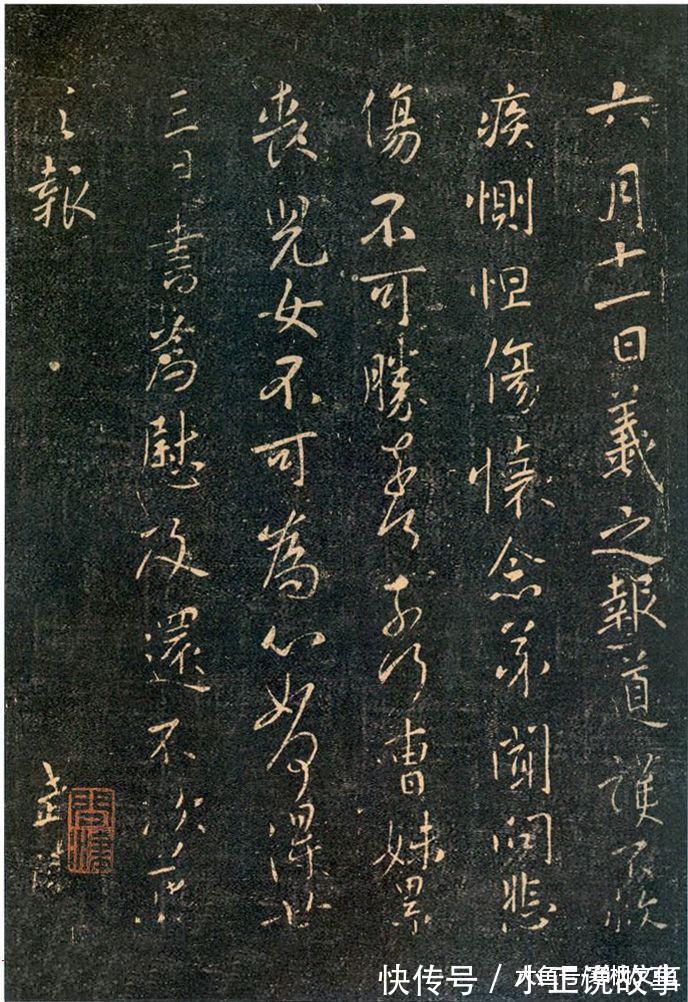 六月十一日羲之報道護不救
疾惻怛傷懷念弟聞問悲
傷不可勝奈何奈何曹妹累
喪兒女不可為心如何得廿
三日書為慰及還不次羲
之報
快传号 / 小正说故事